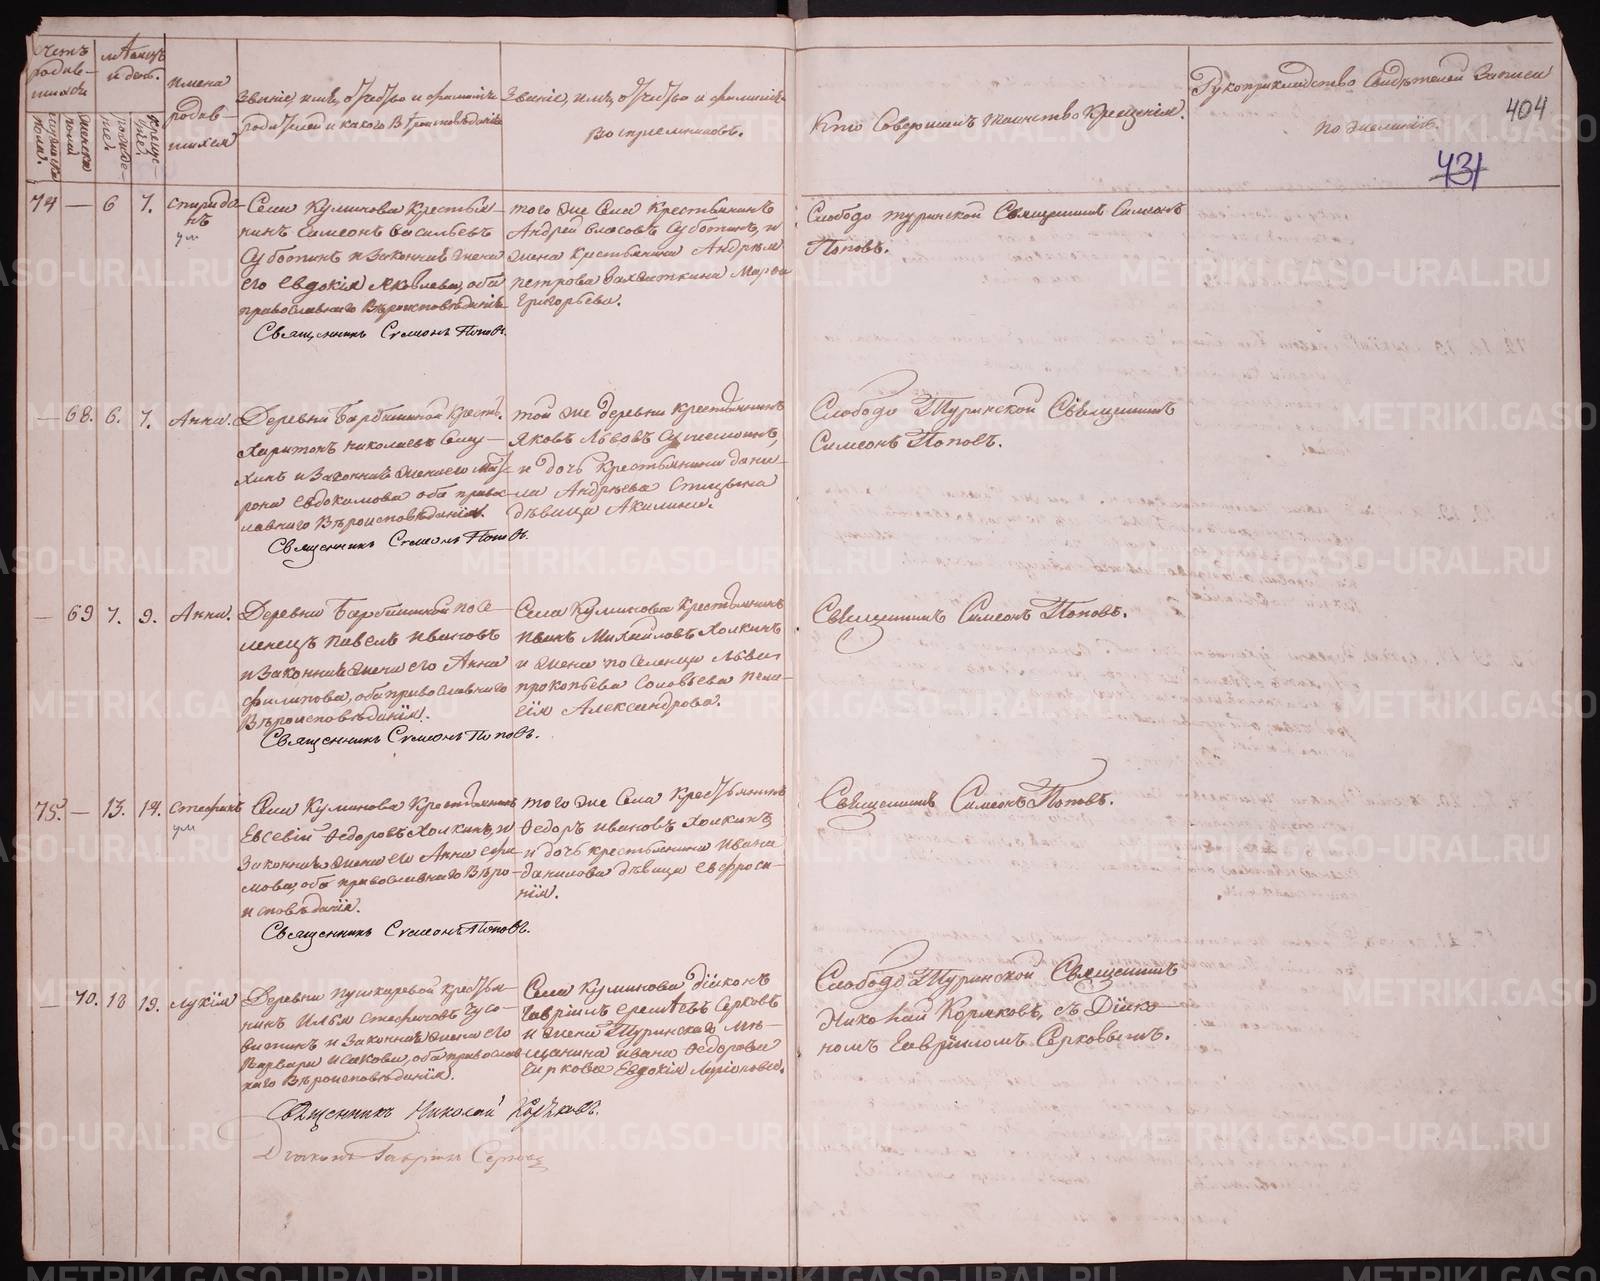 Счетъ родив-шихся
мѣсяцъ и день.
Имена родив-шихся
Званіе, имя, отчество и фамилія
родителей и какого вѣроисповѣданія
Званіе, имя, отчество и фамилія
Воспріемниковъ.
Кто Совершилъ таинство Крещенія.
Рукоприкладство Свидѣтелей Записи
по желанію.
404
431
мужеска пола.
женска
74 — 6 7. Спиридо-нъ
ум
Села Куликова Крестья-
нинъ Симеонъ Васильевъ
Субботинъ и Законная жена
его Евдокія Яковлева, оба
православнаго Вѣроисповѣданія
Священникъ Симеонъ Поповъ.
того же Села Крестьянинъ
Андрей Власовъ Субботинъ, и
жена Крестьянина Андрея
Петрова Марѳа
Григорьева.
Слободо Туринской Священникъ Симеонъ
Поповъ.
— 68. 6. 7. Анна.
Деревни Барбашиной Крест.
Харитонъ Николаевъ
и Законная жена его Мат-
рона Евдокимова оба право-
славнаго Вѣроисповѣданія.
Священникъ Симеонъ Поповъ.
той же деревни Крестьянинъ
Яковъ Львовъ
и дочь Крестьянина Дани-
ла Андрѣева Спицына
дѣвица Акилина.
Слободо Туринской Священникъ
Симеонъ Поповъ.
— 69 7. 9. Анна.
Деревни Барбашиной посе-
ленецъ Павелъ Ивановъ
и Законная жена его Анна
Филипова, оба православнаго
Вѣроисповѣданія.
Священникъ Симеонъ Поповъ.
Села Куликова Крестьянинъ
Иванъ Михайловъ Холкинъ
и жена поселенца Льва
Прокопьева Соловьева Пела-
гія Александрова.
Священникъ Симеонъ Поповъ.
75. — 13. 14. Стефанъ
ум
Села Куликова Крестьянинъ
Евсевій Ѳедоровъ Холкинъ, и
Законная жена его Анна Ефи-
мова, оба православнаго Вѣро-
исповѣданія.
Священникъ Симеонъ Поповъ.
того же Села Крестьянинъ
Ѳедоръ Ивановъ Холкинъ,
и дочь крестьянина Ивана
Данилова дѣвица Евфроси-
нія.
Священникъ Симеонъ Поповъ.
— 70. 18 19. Лукія
Деревни Пушкаревой Крестья-
нинъ Илья Стефановъ Чусо-
витинъ и Законная жена его
Варвара Исакова, оба православ-
наго Вѣроисповѣданія.
Священникъ Николай Коряковъ.
Діаконъ Гавріилъ Серковъ
Села Куликова Діаконъ
Гавріилъ Еремѣевъ Серковъ
и жена Туринскаго Мѣ-
щанина Ивана Ѳедорова
Евдокія
Слободо Туринской Священникъ
Николай Коряковъ, съ Діако-
номъ Гавріиломъ Серковымъ.
METRIKI.GASO-URAL.RU